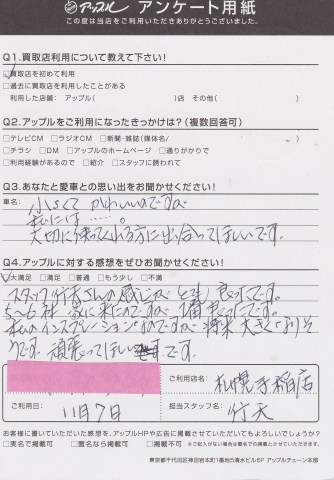 アップル アンケート用紙
この度は当店をご利用いただきありがとうございました。
Q1.買取店利用について教えて下さい!
□買取店を初めて利用
□過去に買取店を利用したことがある
利用した店舗: アップル( )店 その他( )
Q2.アップルをご利用になったきっかけは?(複数回答可)
□テレビCM □ラジオCM □新聞・雑誌(媒体名/ )
□チラシ □DM □アップルのホームページ □通りがかりで
□利用経験があるので □紹介 □スタッフに誘われて
Q3.あなたと愛車との思い出をお聞かせください!
車名:
小さくて かわいいのですが
私には……。
大切に使ってくれる方に出会ってほしいです。
Q4.アップルに対する感想をぜひお聞かせください!
□大満足 □満足 □普通 □もう少し □不満
スタッフ 行天さんの感じが とても 良かったです。
5〜6社 家に来たのですが 一番 良かったです。
私のインスプレーションなのですが 将来 大きくなりそ
うです。頑張ってほしい です。
ご利用店名: 札幌手稲店
ご利用日: 11月7日
担当スタッフ名: 行天
お客様に書いていただいた感想を、アップルHPや広告に掲載させていただいてもよろしいでしょうか?
□実名で掲載可 □匿名なら掲載可 □掲載不可
東京都千代田区神田岩本町1番地5清水ビル6F アップルチェーン本部